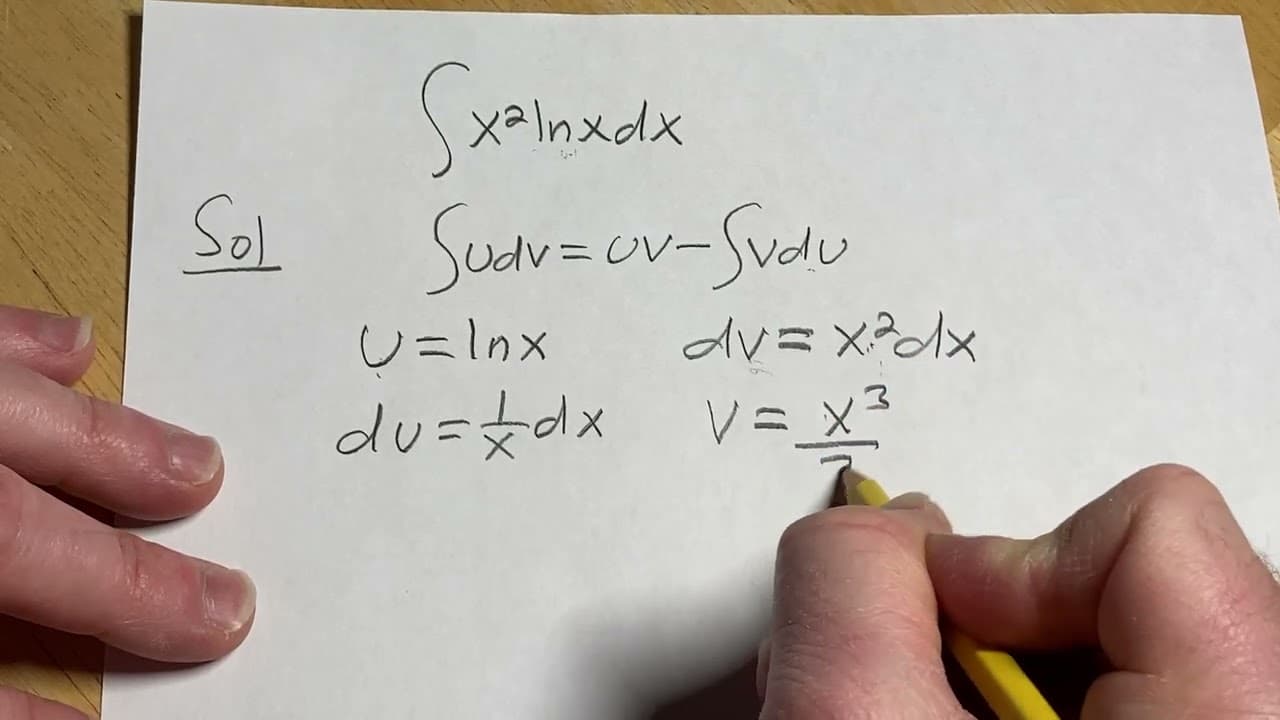 ∫x²lnxdx
Sol ∫udv=uv-∫vdu
u=lnx dv=x²dx
du=1/x dx v=x³/3